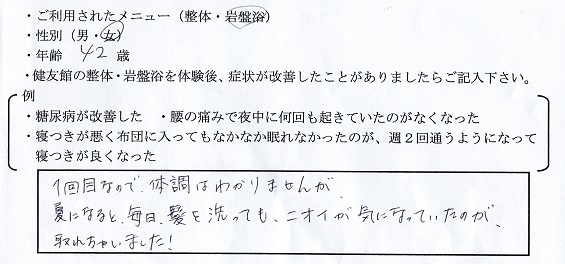 ・ご利用されたメニュー（整体・岩盤浴）
・性別（男・女）
・年齢　42　歳
・健友館の整体・岩盤浴を体験後、症状が改善したことがありましたらご記入下さい。
例
・糖尿病が改善した　・腰の痛みで夜中に何回も起きていたのがなくなった
・寝つきが悪く布団に入ってもなかなか眠れなかったのが、週２回通うようになって
寝つきが良くなった
1回目なので、体調はわかりませんが、
夏になると、毎日、髪を洗っても、ニオイが気になっていたのが、
取れちゃいました！